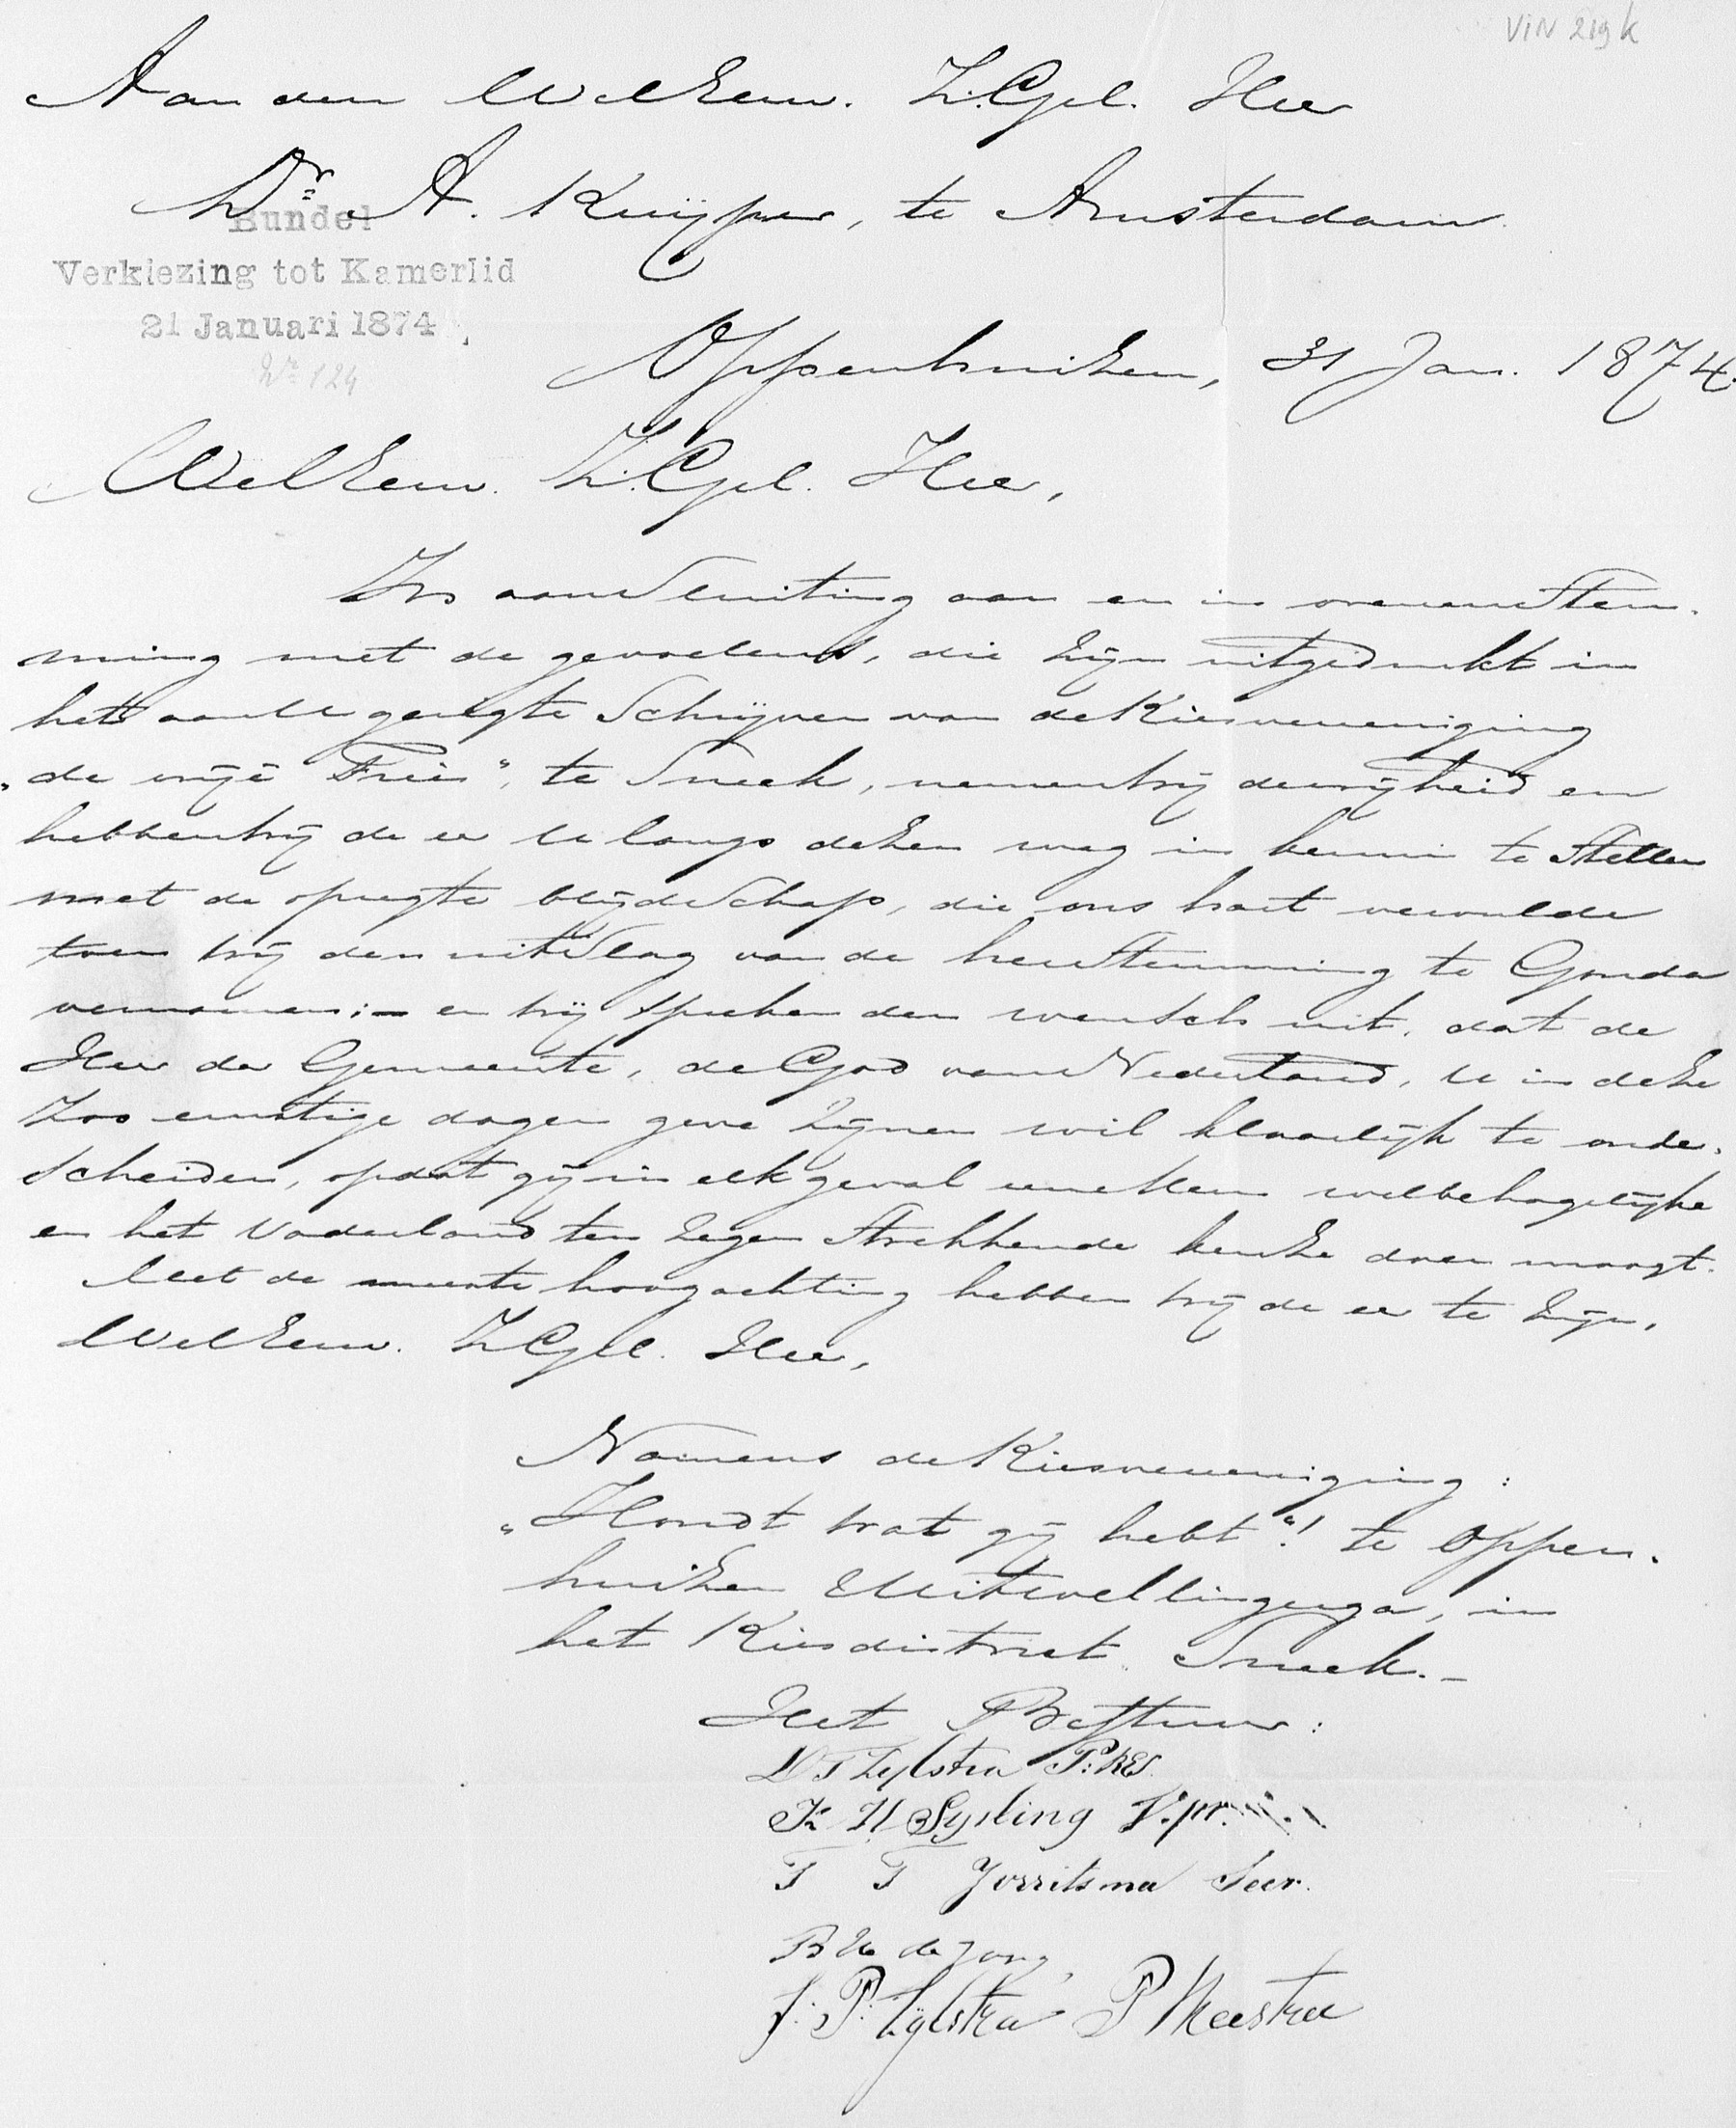 VIN 219k
Aan den WelEerw. Z.Gel. Heer
Dr A. Kuijper, te Amsterdam.
Bundel
Verkiezing tot Kamerlid
21 Januari 1874
No 124
Oppenhuizen, 31 Jan. 1874.
WelEerw. Z.Gel. Heer,
In aansluiting aan en in overeenstem-
ming met de gevoelens, die zijn uitgedrukt in
het aan U gerigte schrijven van de Kiesvereeniging
„de vrije Fries", te Sneek, nemen wij de vrijheid en
hebben wij de eer U langs dezen weg in kennis te stellen
met de opregte blijdschap, die ons hart vervulde
toen wij den uitslag van de herstemming te Gouda
vernamen; – en wij spreken den wensch uit, dat de
Heer der Gemeente, de God van Nederland, U in deze
zoo ernstige dagen geve Zijnen wil klaarlijk te onder-
scheiden, opdat gij in elk geval eene Hem welbehagelijke
en het Vaderland ten zegen strekkende keuze doen moogt.
Met de meeste hoogachting hebben wij de eer te zijn,
WelEerw. ZGel. Heer,
Namens de Kiesvereeniging:
„Houdt wat gij hebt"! te Oppen-
huizen Uitwellingerga, in
het Kiesdistrict Sneek. –
Het Bestuur:
D T Zylstra Pres.
K H Sysling V.pr.
T T Jorritsma Secr.
B H de Jong,
J. P. Zijlstra P Meestra